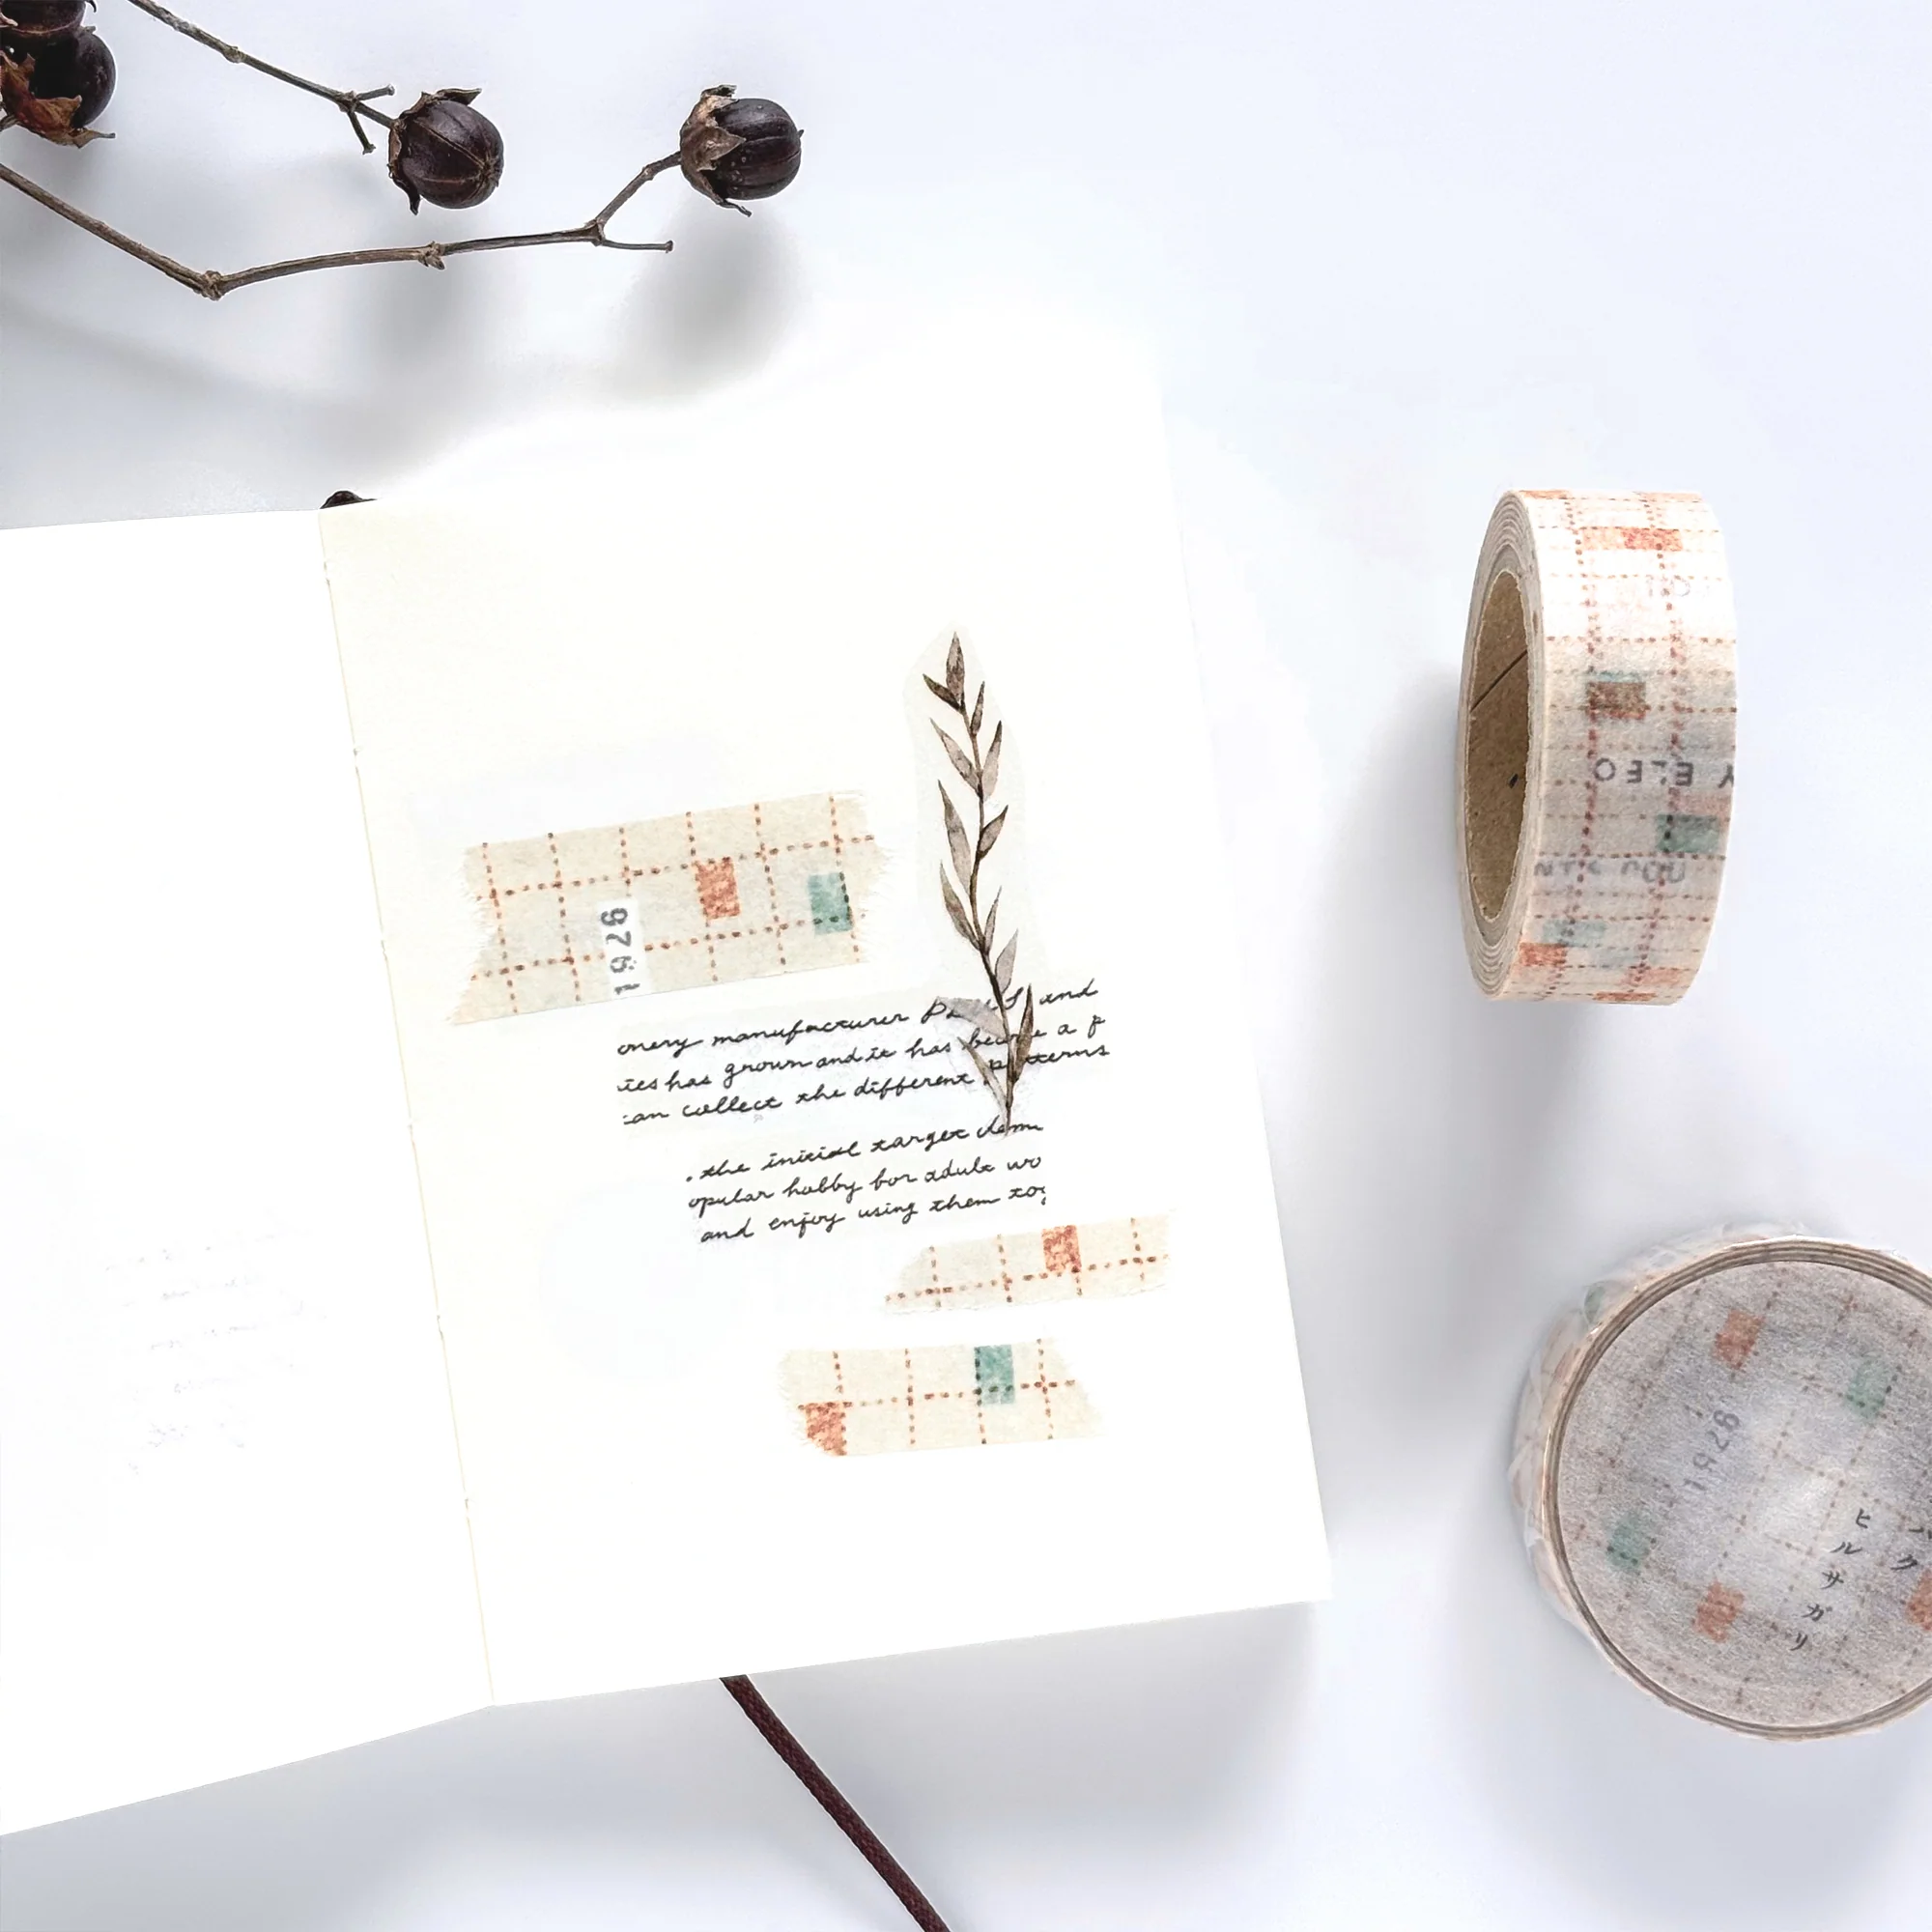 1976
onery manufacturer and
ies has grown and it has become a p
can collect the different patterns
. the initial target dem
opular hobby for adult wo
and enjoy using them tog
Y ELFO
1976
ヒルサガリ